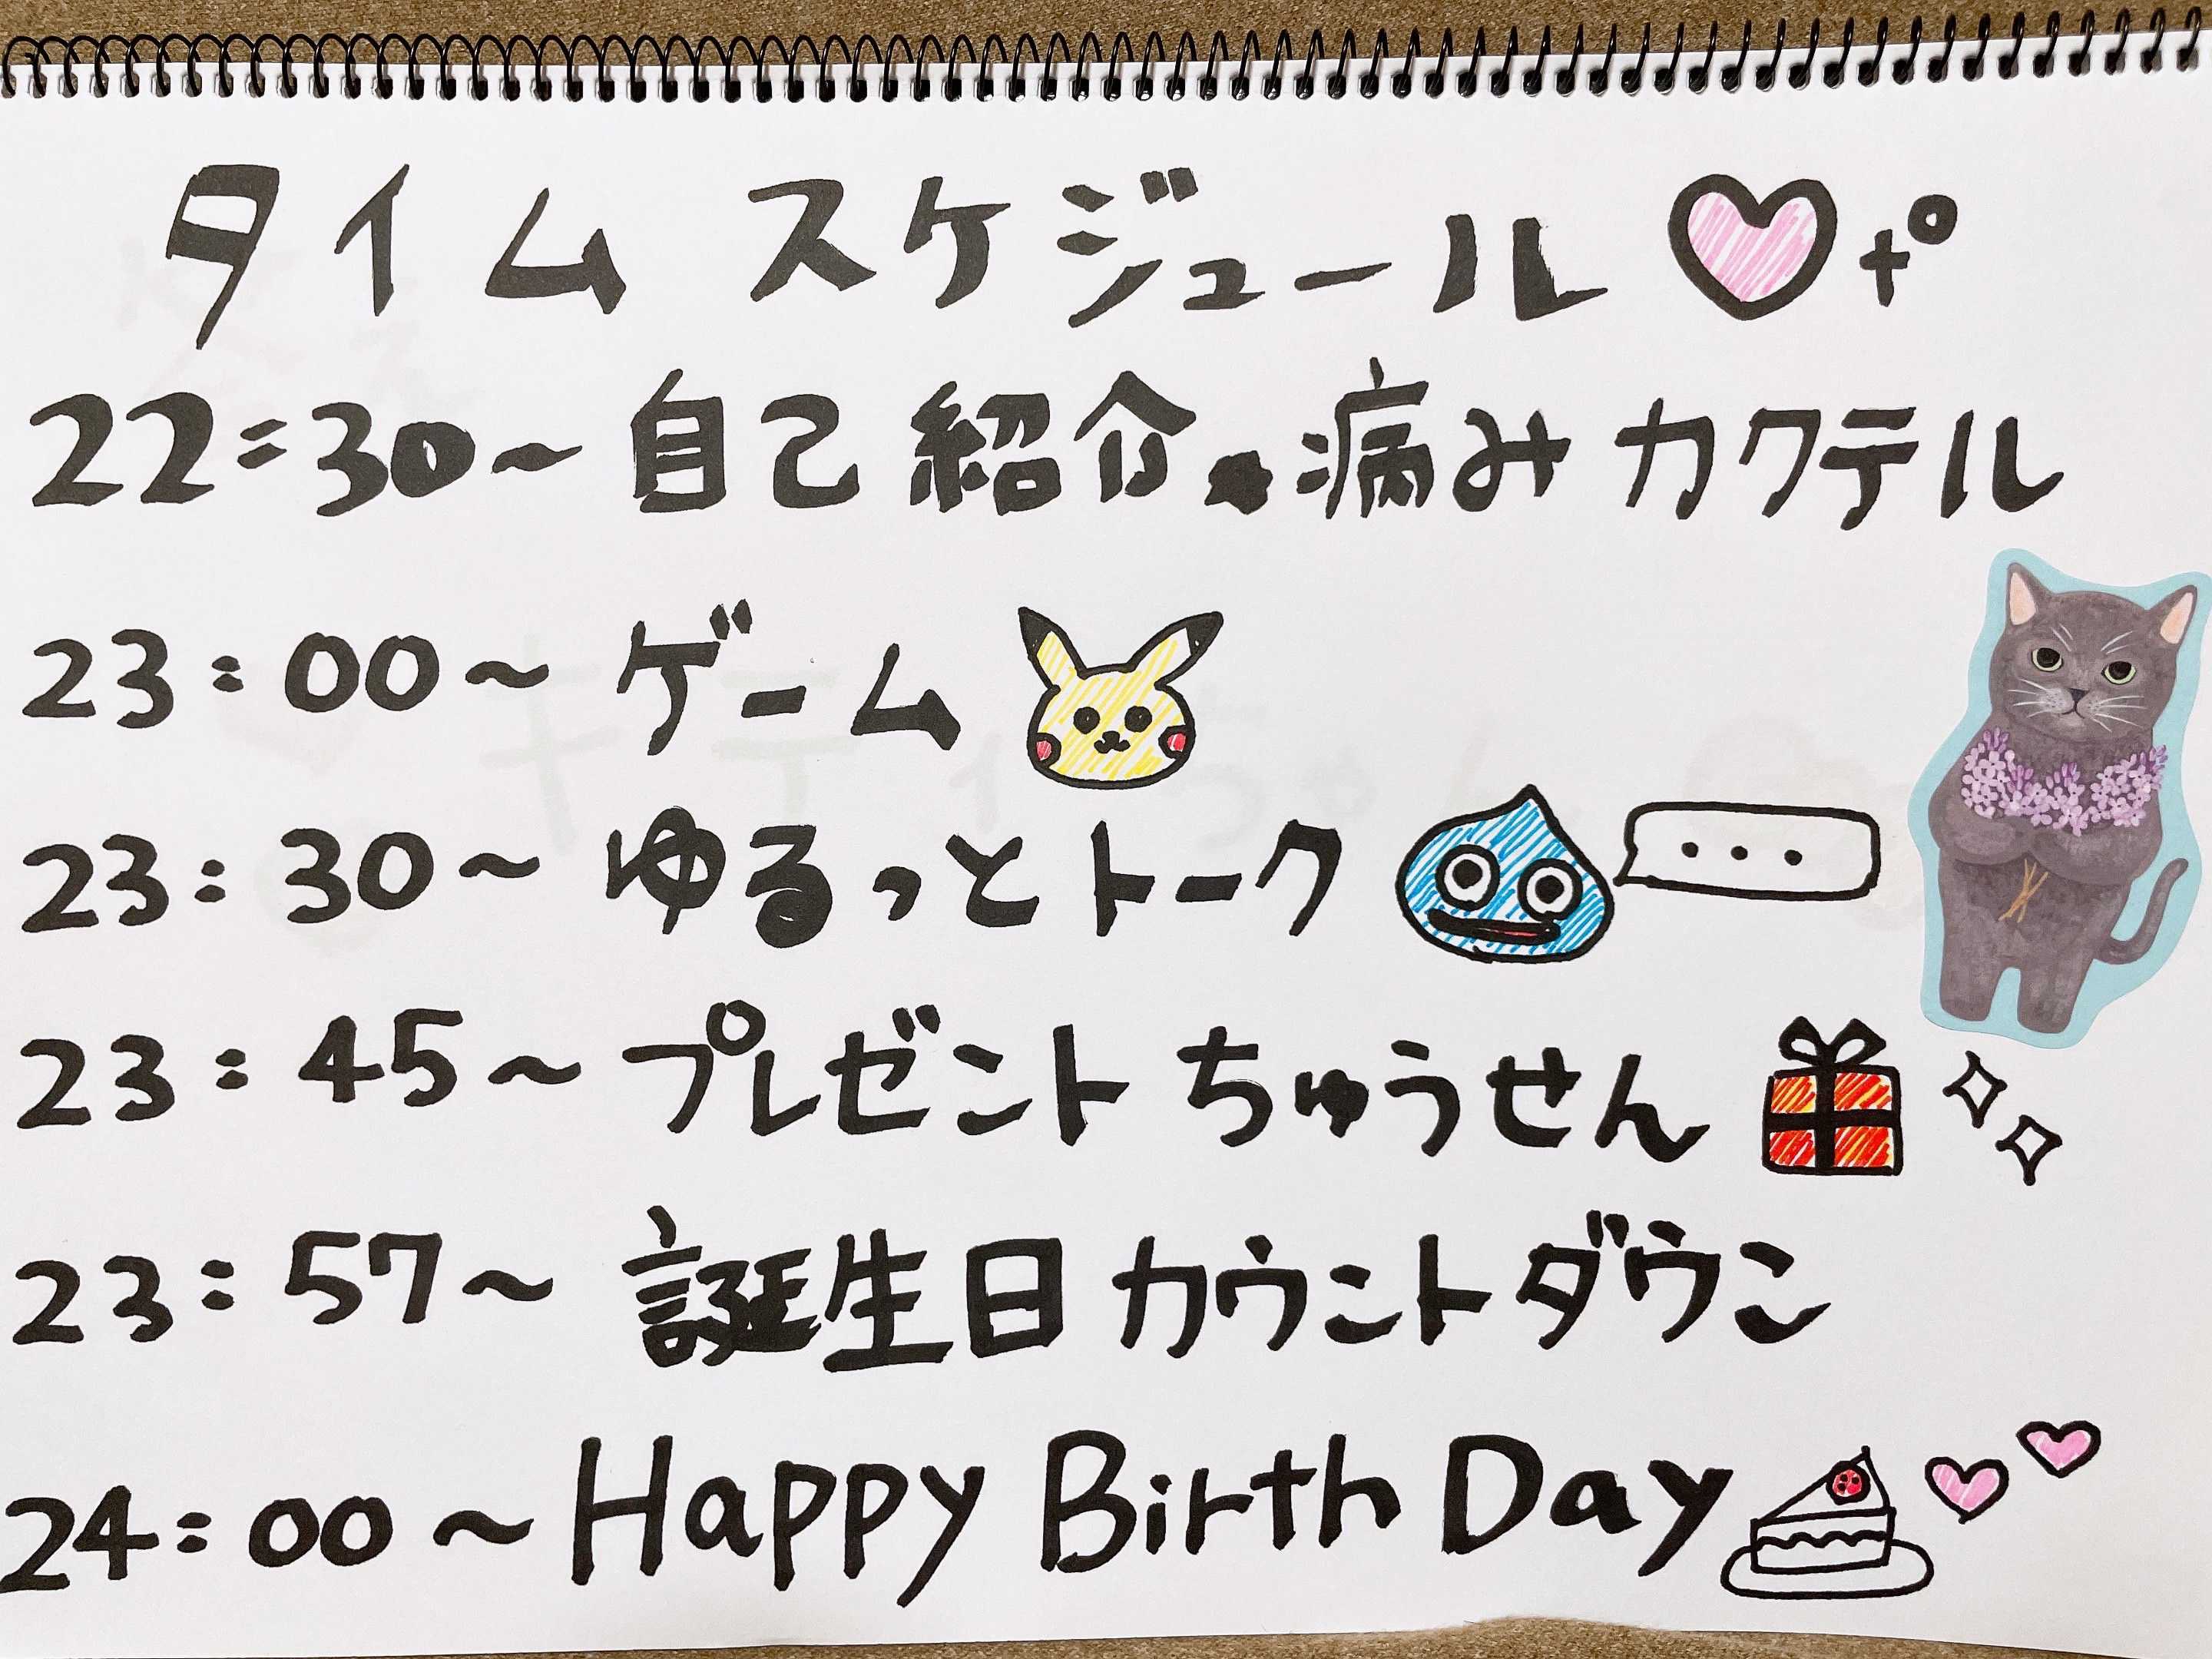 タイム スケジュール
22:30～自己紹介・病みカクテル
23:00～ゲーム
23:30～ゆるっとトーク ...
23:45～プレゼントちゅうせん
23:57～誕生日カウントダウン
24:00～Happy Birth Day